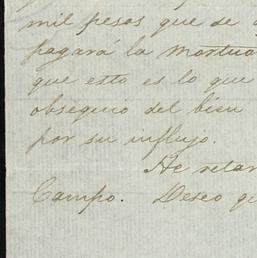 mil pesos que se
pagará la mortua
que esto es lo que
obsequio del bien
por su influjo.
He retar
Campo. Deseo qu